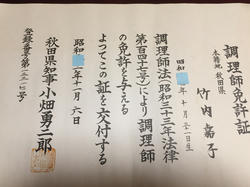 調理師免許証
本籍地 秋田県
竹内嘉子
昭和 年十月二十一日生
調理師法(昭和三十三年法律
第百四十七号)により調理師
の免許を与える
よってこの証を交付する
昭和 年十一月六日
秋田県知事 小畑勇二郎
登録番号第 号